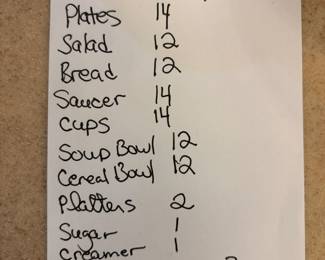 Plates 14
Salad 12
Bread 12
Saucer 14
Cups 14
Soup Bowl 12
Cereal Bowl 12
Platters 2
Sugar 1
Creamer 1